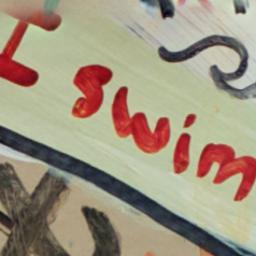 I swim